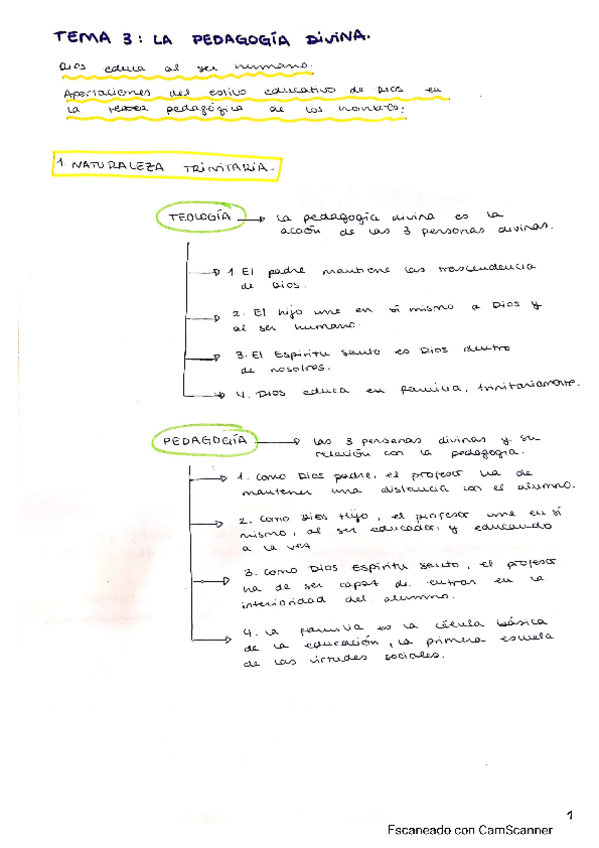 TEMA 3: LA PEDAGOGÍA DIVINA.
Dios educa al ser humano.
Aportaciones del estilo educativo de Dios en
la pedagógica de los hombres.
1. NATURALEZA TRINITARIA.
TEOLOGÍA → la pedagogía divina es la
acción de las 3 personas divinas.
1. El padre mantiene las trascendencia
de Dios.
2. El hijo une en sí mismo a Dios y
al ser humano.
3. El Espíritu santo es Dios dentro
de nosotros.
4. Dios educa en familia, trinitariamente.
PEDAGOGÍA → las 3 personas divinas y su
relación con la pedagogía.
1. Como Dios padre, el profesor ha de
mantener una distancia con el alumno.
2. Como Dios Hijo, el profesor une en sí
mismo, al ser educador y educando
a la vez
3. Como Dios Espíritu santo, el profesor
ha de ser capaz de entrar en la
interioridad del alumno.
4. La familia es la célula básica
de la educación, la primera escuela
de las virtudes sociales.
1
Escaneado con CamScanner